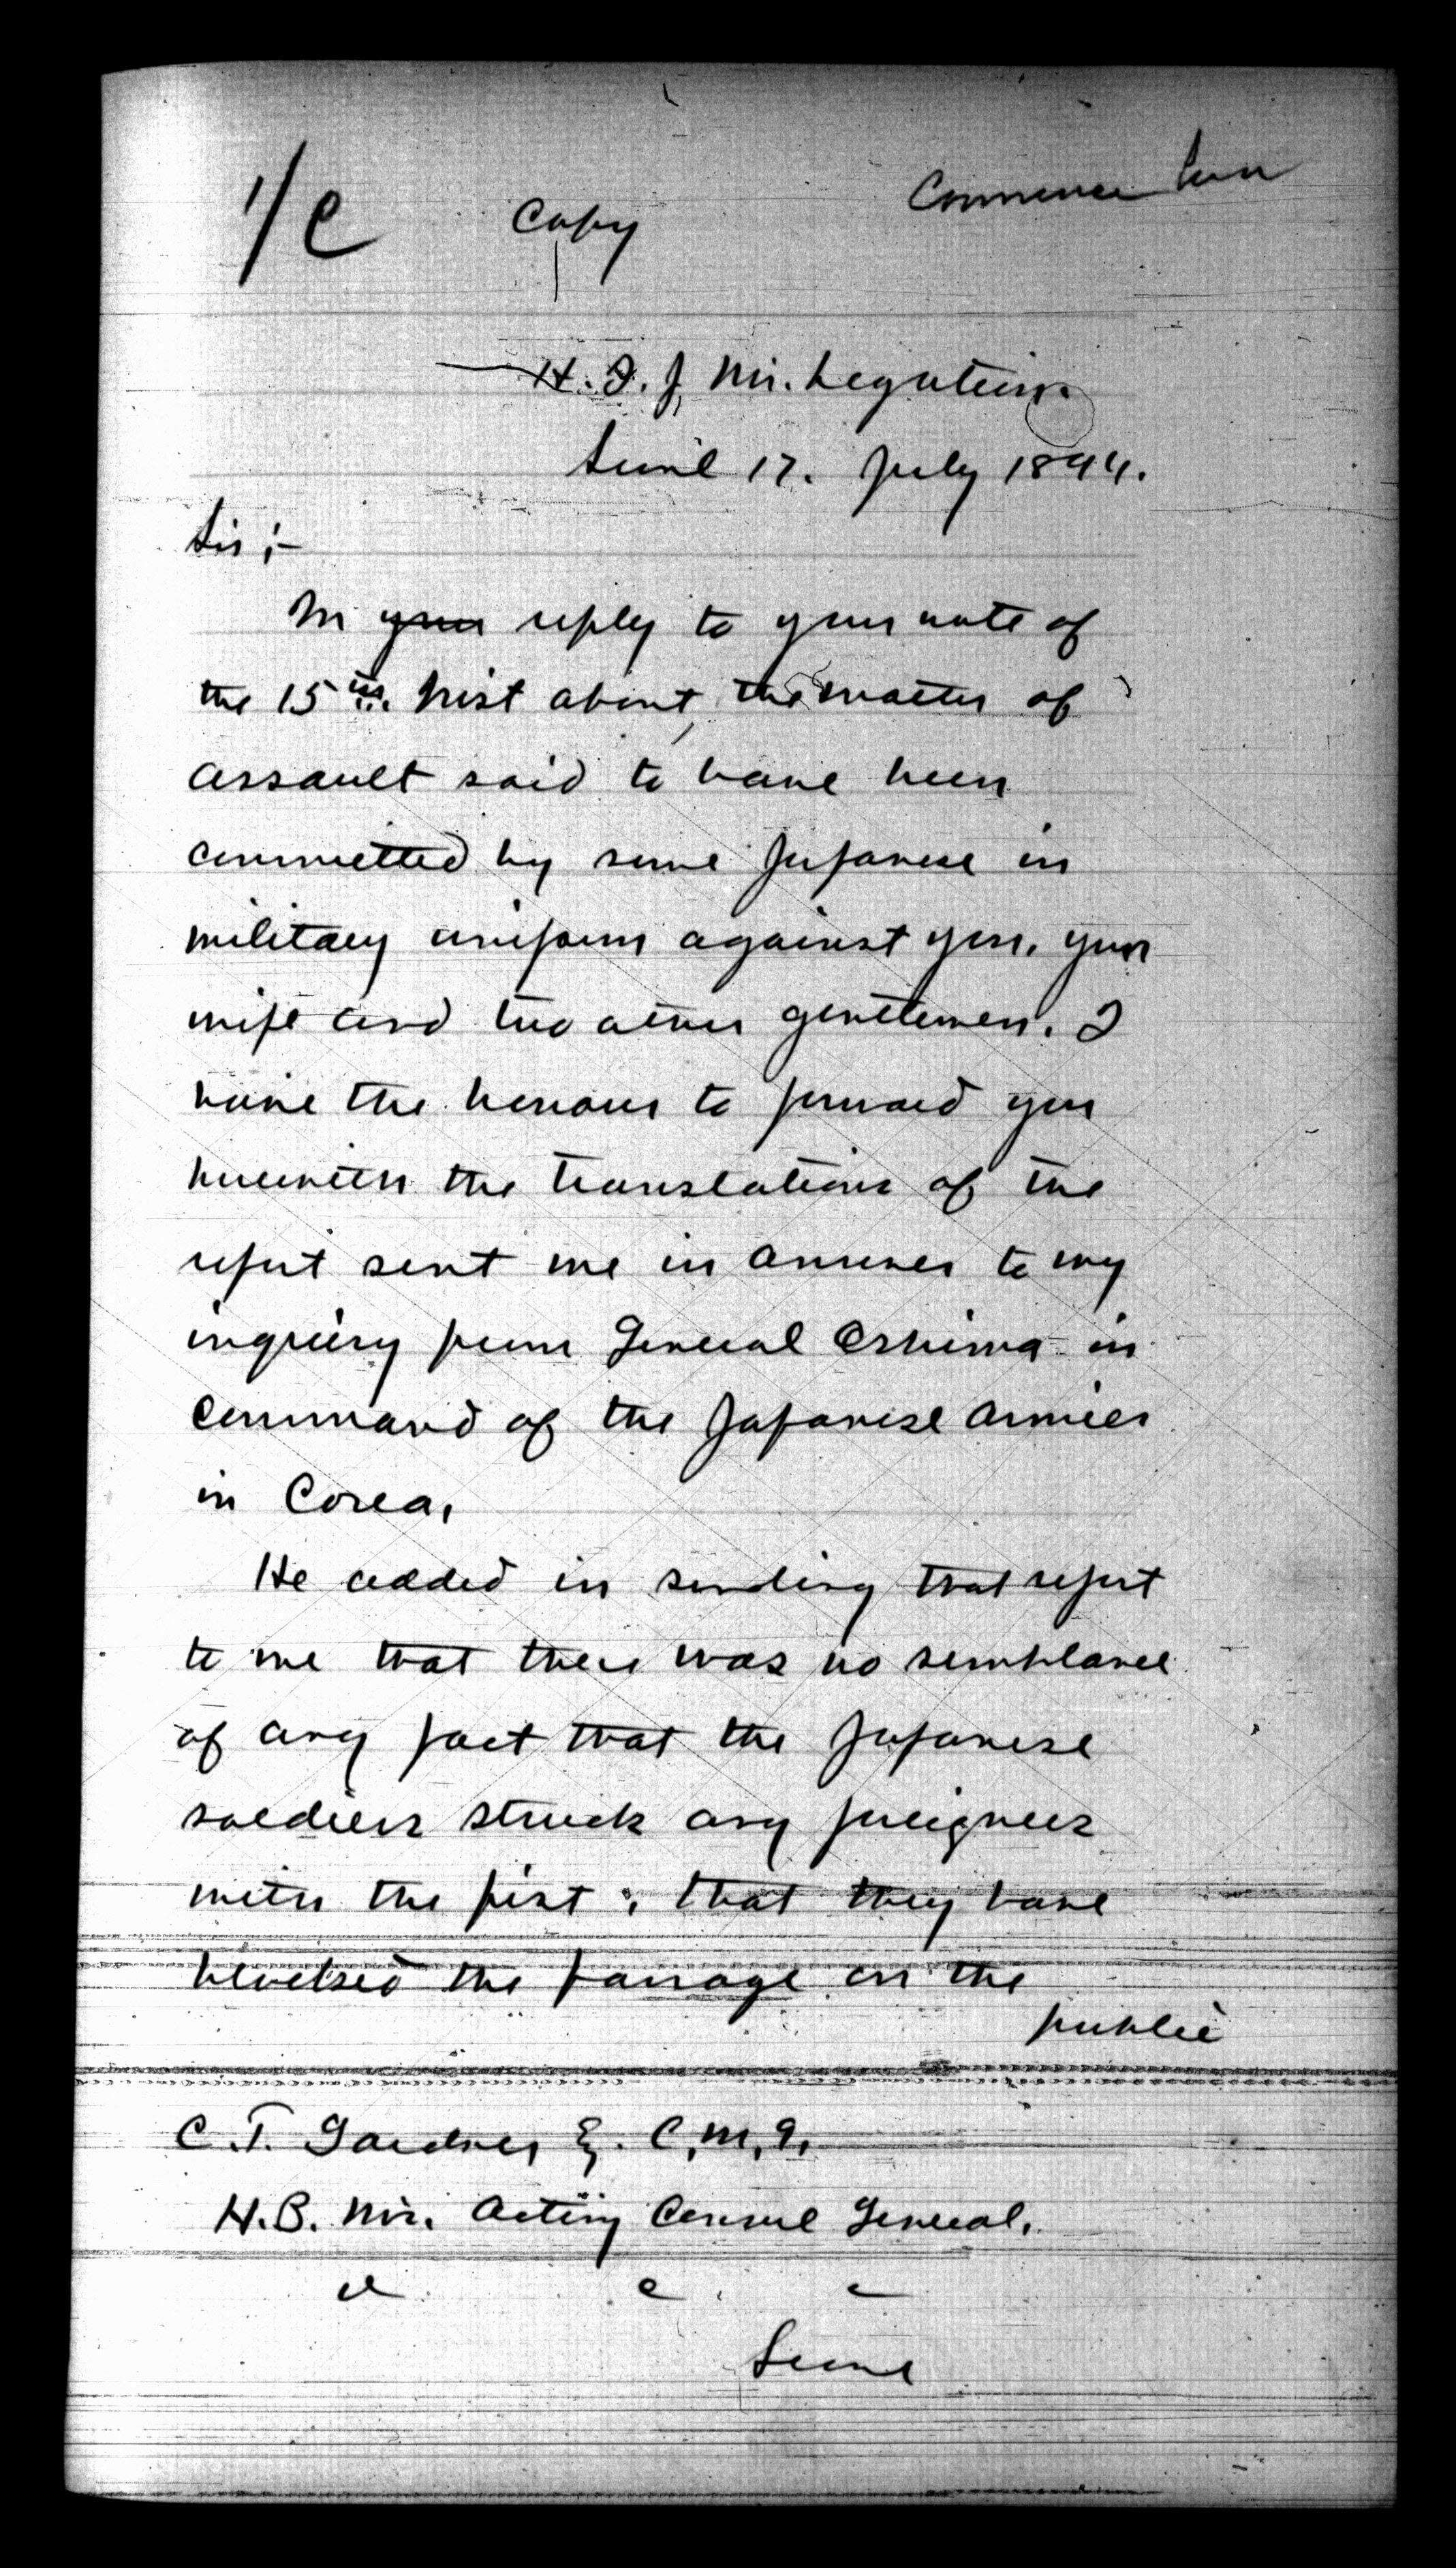 1/C Copy Commence here
H. I. J. M's. Legation.
Seoul 17. July 1894.
Sir ;-
In your reply to your note of
the 15th. Inst about the matter of
assault said to have been
committed by some Japanese in
military uniform against you, your
wife and two other gentlemen. I
have the honour to forward you
herewith the translation of the
report sent me in answer to my
inquiry from General Oshima in
command of the Japanese armies
in Corea.
He added in sending that report
to me that there was no semblance
of any fact that the Japanese
soldiers struck any foreigners
with the fist ; that they have
blocked the passage on the
public
C. T. Gardner, E. C.M.G.
H.B. M's. Acting Consul General.
Seoul